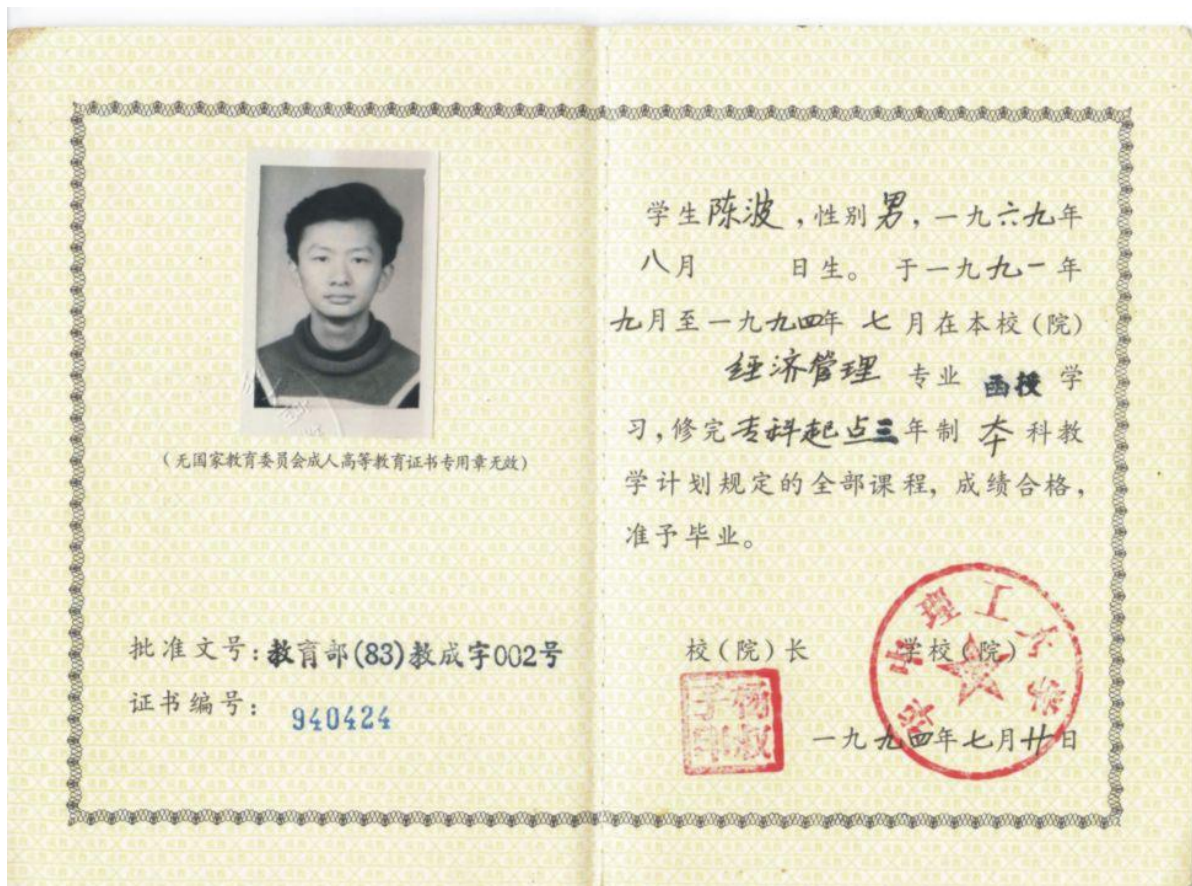 （无国家教育委员会成人高等教育证书专用章无效）
批准文号：教育部(83)教成字002号
证书编号：940424
学生陈波，性别男，一九六九年
八月 日生。于一九九一年
九月至一九九四年七月在本校（院）
经济管理 专业 函授 学
习，修完专科起点三年制 本 科教
学计划规定的全部课程，成绩合格，
准予毕业。
校（院）长 学校（院）
华中理工大学
杨叔子印
一九九四年七月廿日